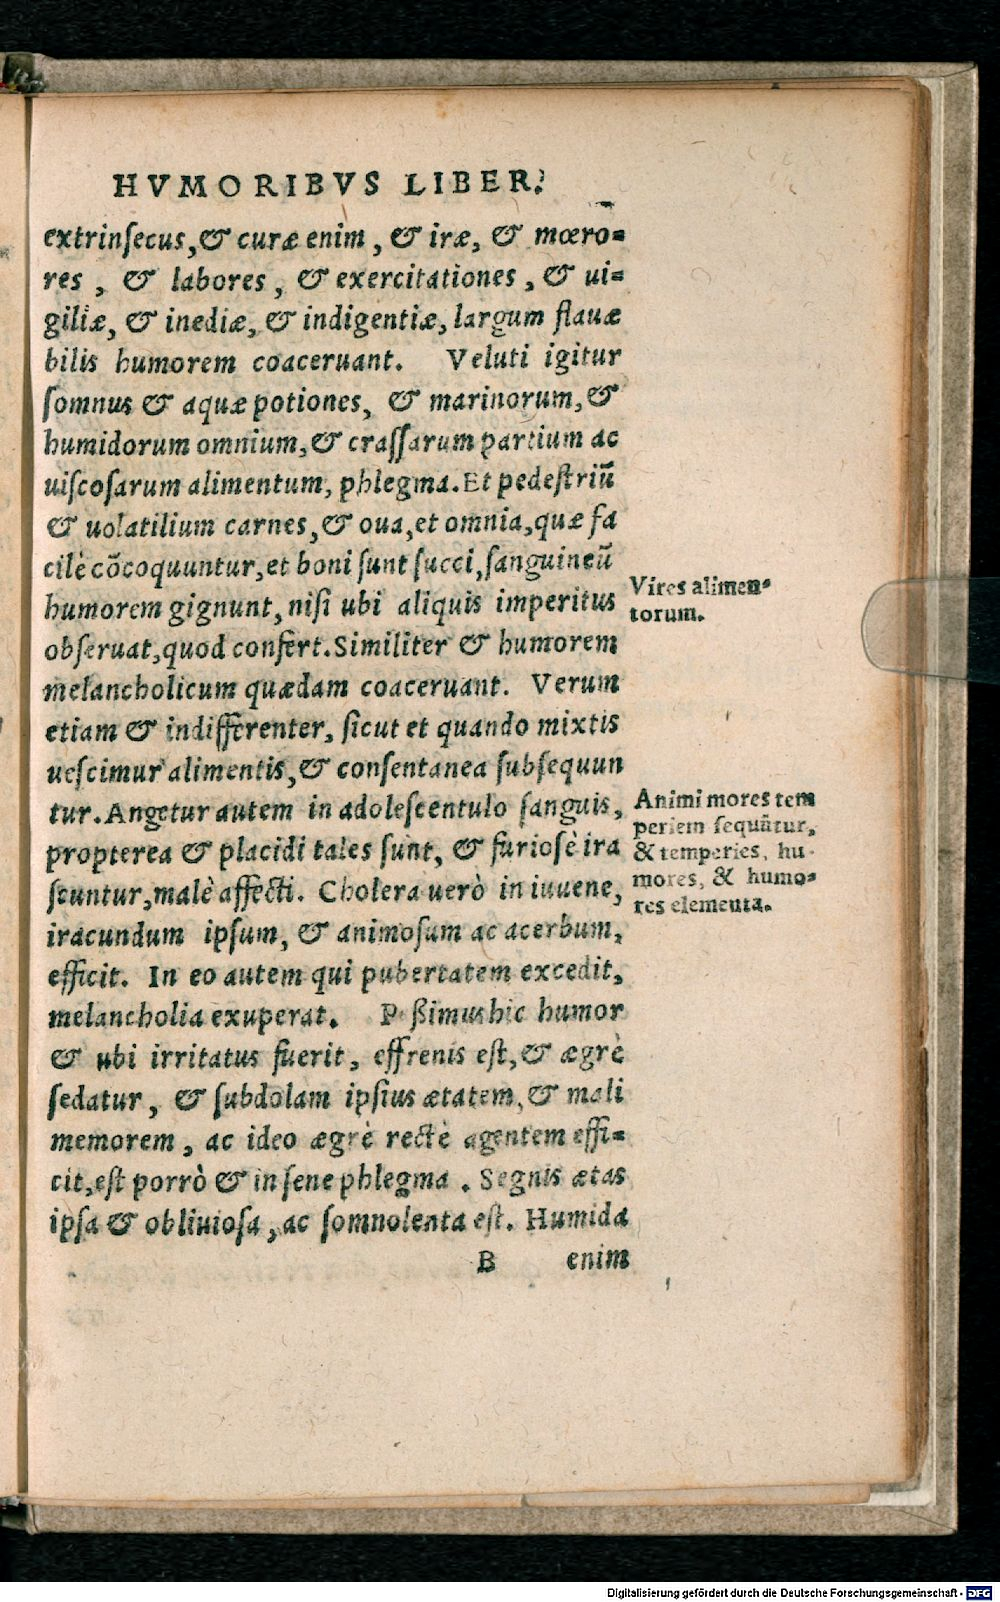 HVMORIBVS LIBER.
extrinſecus, & curæ enim, & iræ, & mœro=
res, & labores, & exercitationes, & ui=
giliæ, & inediæ, & indigentiæ, largum flauæ
bilis humorem coaceruant. Veluti igitur
ſomnus & aquæ potiones, & marinorum, &
humidorum omnium, & craſſarum partium ac
uiſcoſarum alimentum, phlegma. Et pedeſtriū
& uolatilium carnes, & oua, et omnia, quæ fa
cilè cōcoquuntur, et boni ſunt ſucci, ſanguineū
humorem gignunt, niſi ubi aliquis imperitus
obſeruat, quod confert. Similiter & humorem
melancholicum quædam coaceruant. Verum
etiam & indifferenter, ſicut et quando mixtis
ueſcimur alimentis, & conſentanea ſubſequun
tur. Angetur autem in adoleſcentulo ſanguis,
propterea & placidi tales ſunt, & furioſè ira
ſcuntur, malè affecti. Cholera uerò in iuuene,
iracundum ipſum, & animoſum ac acerbum,
efficit. In eo autem qui pubertatem excedit,
melancholia exuperat. P ßimus hic humor
& ubi irritatus fuerit, effrenis eſt, & ægrè
ſedatur, & ſubdolam ipſius ætatem, & mali
memorem, ac ideo ægrè rectè agentem effi=
cit, eſt porrò & in ſene phlegma. Segnis ætas
ipſa & obliuioſa, ac ſomnolenta eſt. Humida
B enim
Vires alimen=
torum.
Animi mores tem
periem ſequūtur,
& temperies, hu-
mores, & humo=
res elementa.
Digitalisierung gefördert durch die Deutsche Forschungsgemeinschaft - DFG